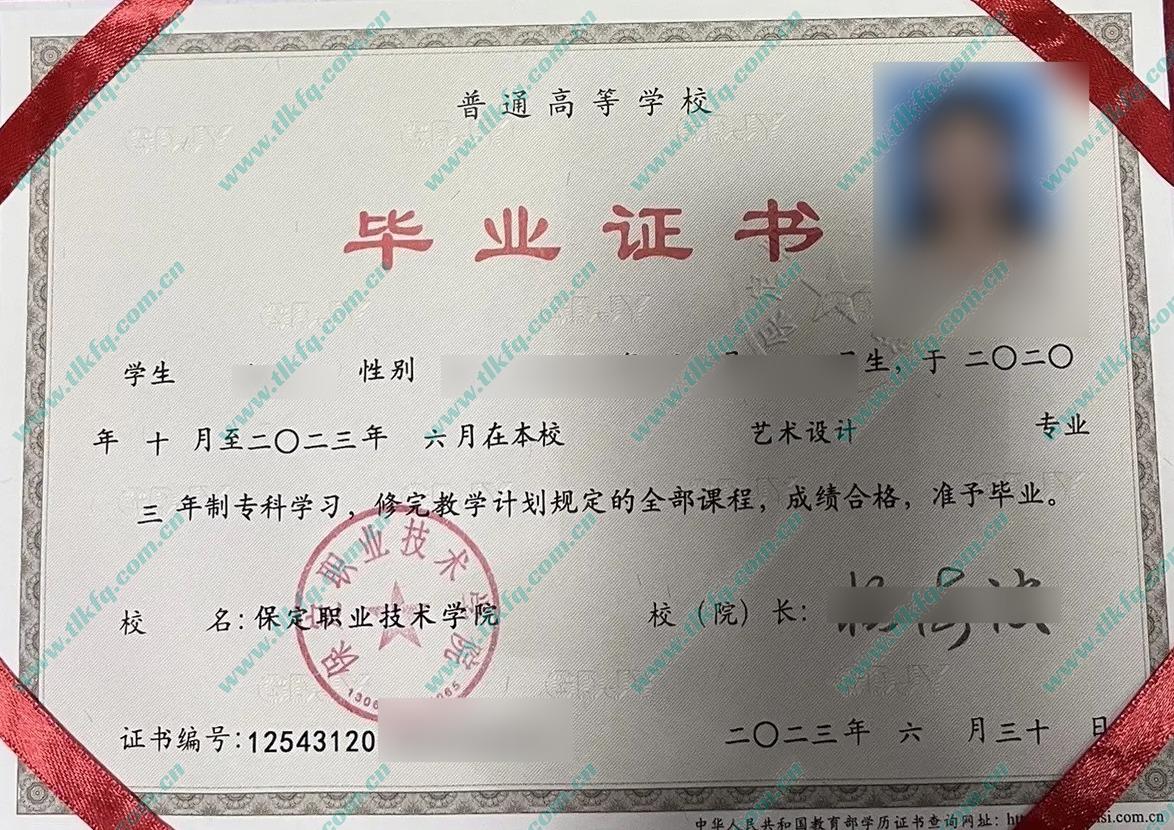 普通高等学校
毕业证书
学生 性别 生，于 二〇二〇
年 十 月至二〇二三年 六月在本校 艺术设计 专业
三 年制专科学习，修完教学计划规定的全部课程，成绩合格，准予毕业。
保定职业技术学院
校 名：保定职业技术学院 校（院）长：
证书编号：12543120 二〇二三年 六 月三十 日
中华人民共和国教育部学历证书查询网址：
www.tlkfq.com.cn